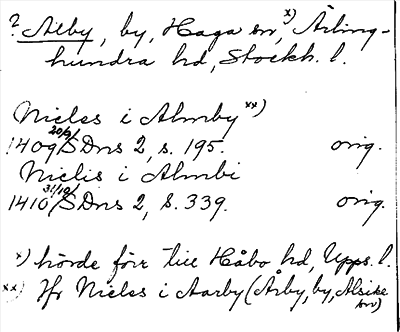 ? Alby, by, Haga sn, x) Ärling-
hundra hd, Stockh. l.
Nicles i Almby xx)
1409 20/9/ SDns 2, s. 195. orig.
Niclis i Almbi
1410 31/10/ SDns 2, s. 339. orig.
x) hörde förr till Håbo hd, Upps. l.
xx) Jfr Nicles i Aarby (Årby, by, Alsike
sn)